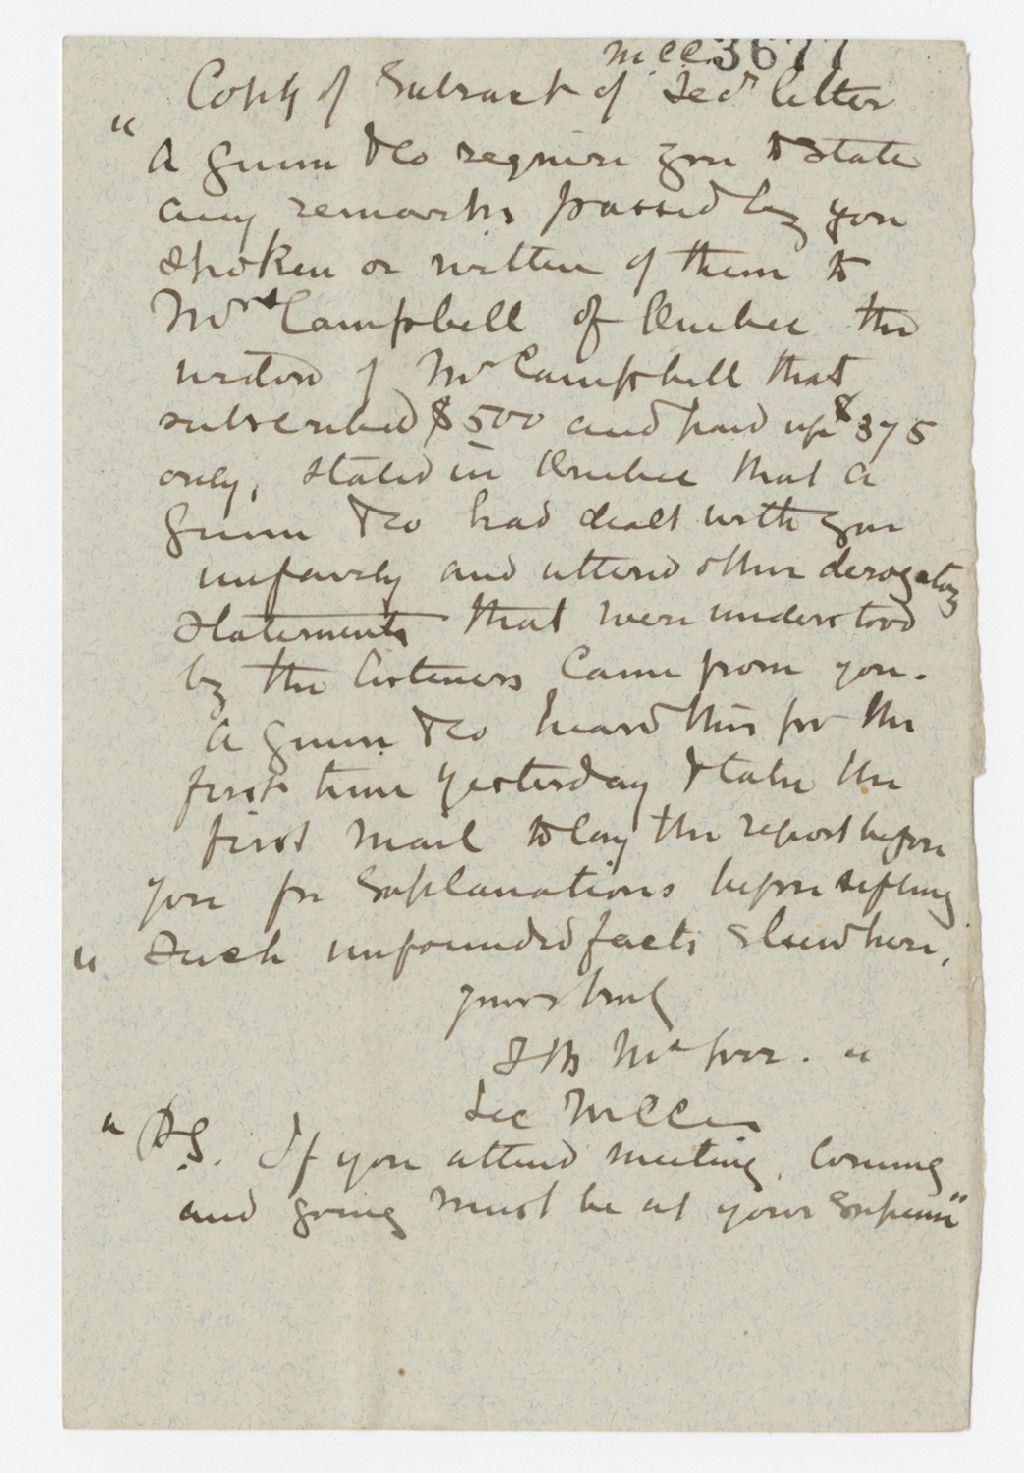 MCC. 3677
Copy of Extract of Secy letter
"A Gunn & Co require you to state
any remarks passed by you
spoken or written of them to
Mrs Campbell of Quebec the
widow of Mr Campbell that
subscribed $500 and paid up $375
only, stated in Quebec that A
Gunn & Co had dealt with you
unfairly and uttered other derogatory
statements that were understood
by the listeners came from you.
A Gunn & Co heard this for the
first time yesterday & take the
first mail to lay the report before
you for Explanations before sifting
" Such unfounded facts Elsewhere,
yours truly
"
Sec MCCC
" P.S. If you attend meeting, Coming
and going must be at your Expense"